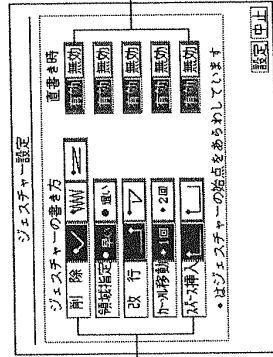 ジェスチャー設定
ジェスチャーの書き方 直書き時
削除 有効 無効
領域指定 ・早い ・狙い 有効 無効
改行 有効 無効
カーソル移動 ・1回 ・2回 有効 無効
スペース挿入 有効 無効
・はジェスチャーの始点をあらわしています
設定 中止